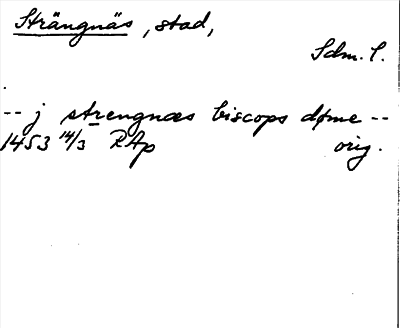 Strängnäs, stad,
Sdm. l.
-- j strengnæs biscops døme --
1453 14/3 RAp orig.